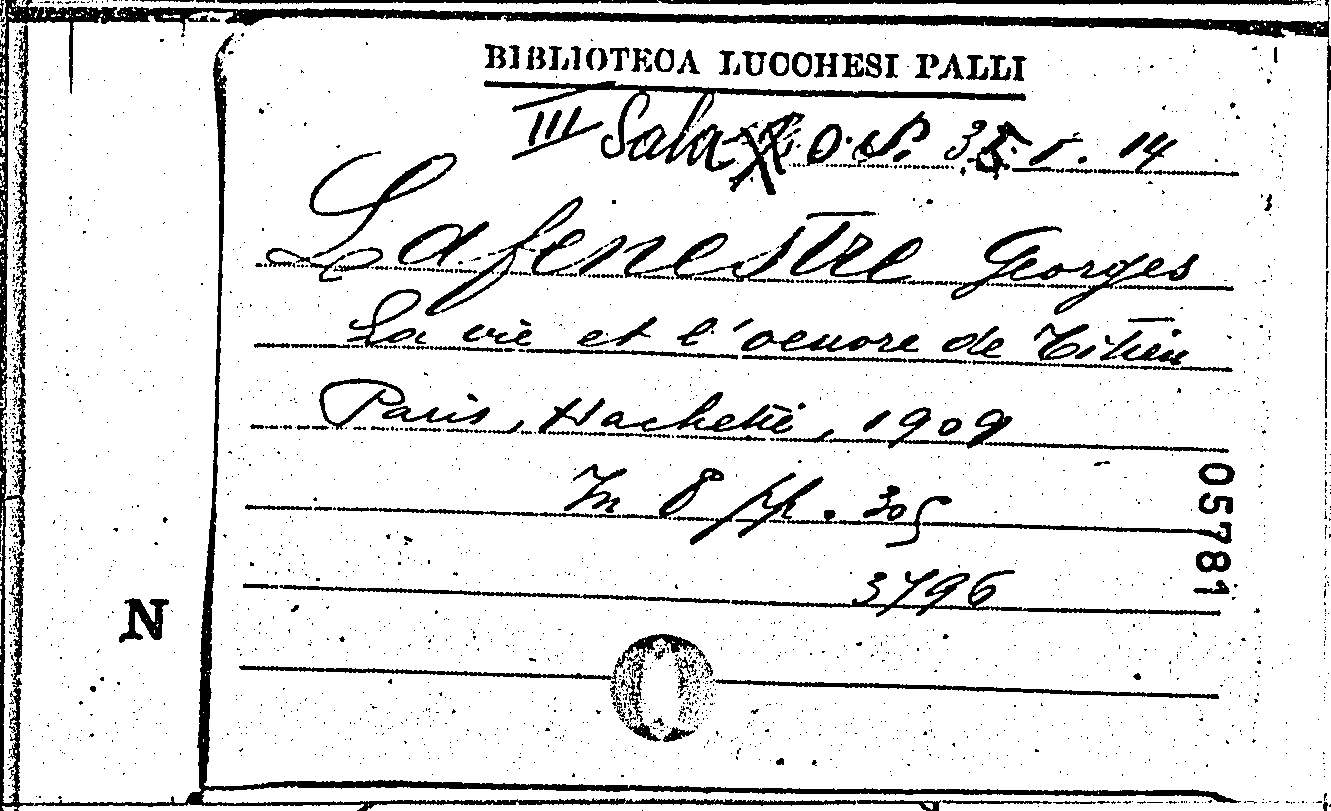 BIBLIOTECA LUCCHESI PALLI
III Sala O. S. 35 r. 14
Lafenestre Georges
La vie et l'oeuvre de Titien
Paris, Hachette, 1909
In 8 pp. 305
3796
05781
N